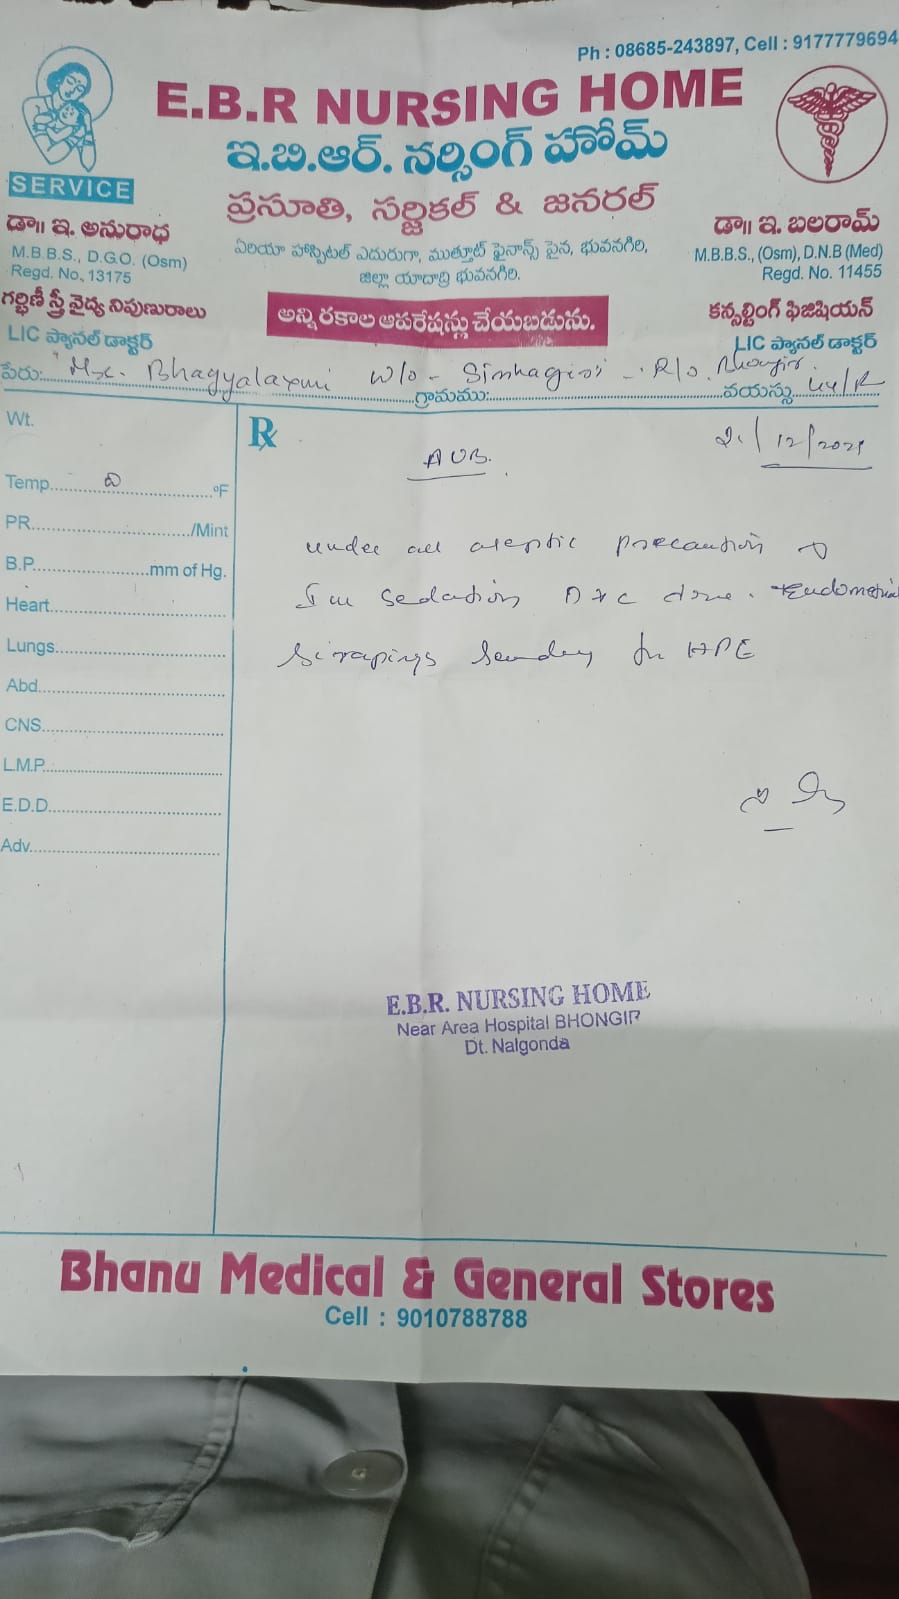 Ph : 08685-243897, Cell : 9177779694
E.B.R NURSING HOME
ఇ.బి.ఆర్. నర్సింగ్ హోమ్
SERVICE
ప్రసూతి, సర్జికల్ & జనరల్
డా॥ ఇ. అనురాధ
M.B.B.S., D.G.O. (Osm)
Regd. No. 13175
గర్భిణీ స్త్రీ వైద్య నిపుణురాలు
LIC ప్యానల్ డాక్టర్
ఏరియా హాస్పిటల్ ఎదురుగా, ముత్తూట్ ఫైనాన్స్ పైన, భువనగిరి,
జిల్లా యాదాద్రి భువనగిరి.
అన్నిరకాల ఆపరేషన్లు చేయబడును.
డా॥ ఇ. బలరామ్
M.B.B.S., (Osm), D.N.B (Med)
Regd. No. 11455
కన్సల్టింగ్ ఫిజిషియన్
LIC ప్యానల్ డాక్టర్
పేరు: Bhagyalaxmi w/o - Simhagiri - R/o. Bhongir
గ్రామము: వయస్సు 44/
Wt.
Temp. °F
PR. /Mint
B.P. mm of Hg.
Heart
Lungs
Abd
CNS
L.M.P.
E.D.D
Adv.
Rx
/12/2021
AUB.
under all aseptic precaution
Im sedation D&C done. Endometrial
Scrapings sending for HPE
E.B.R. NURSING HOME
Near Area Hospital BHONGIR
Dt. Nalgonda
Bhanu Medical & General Stores
Cell : 9010788788